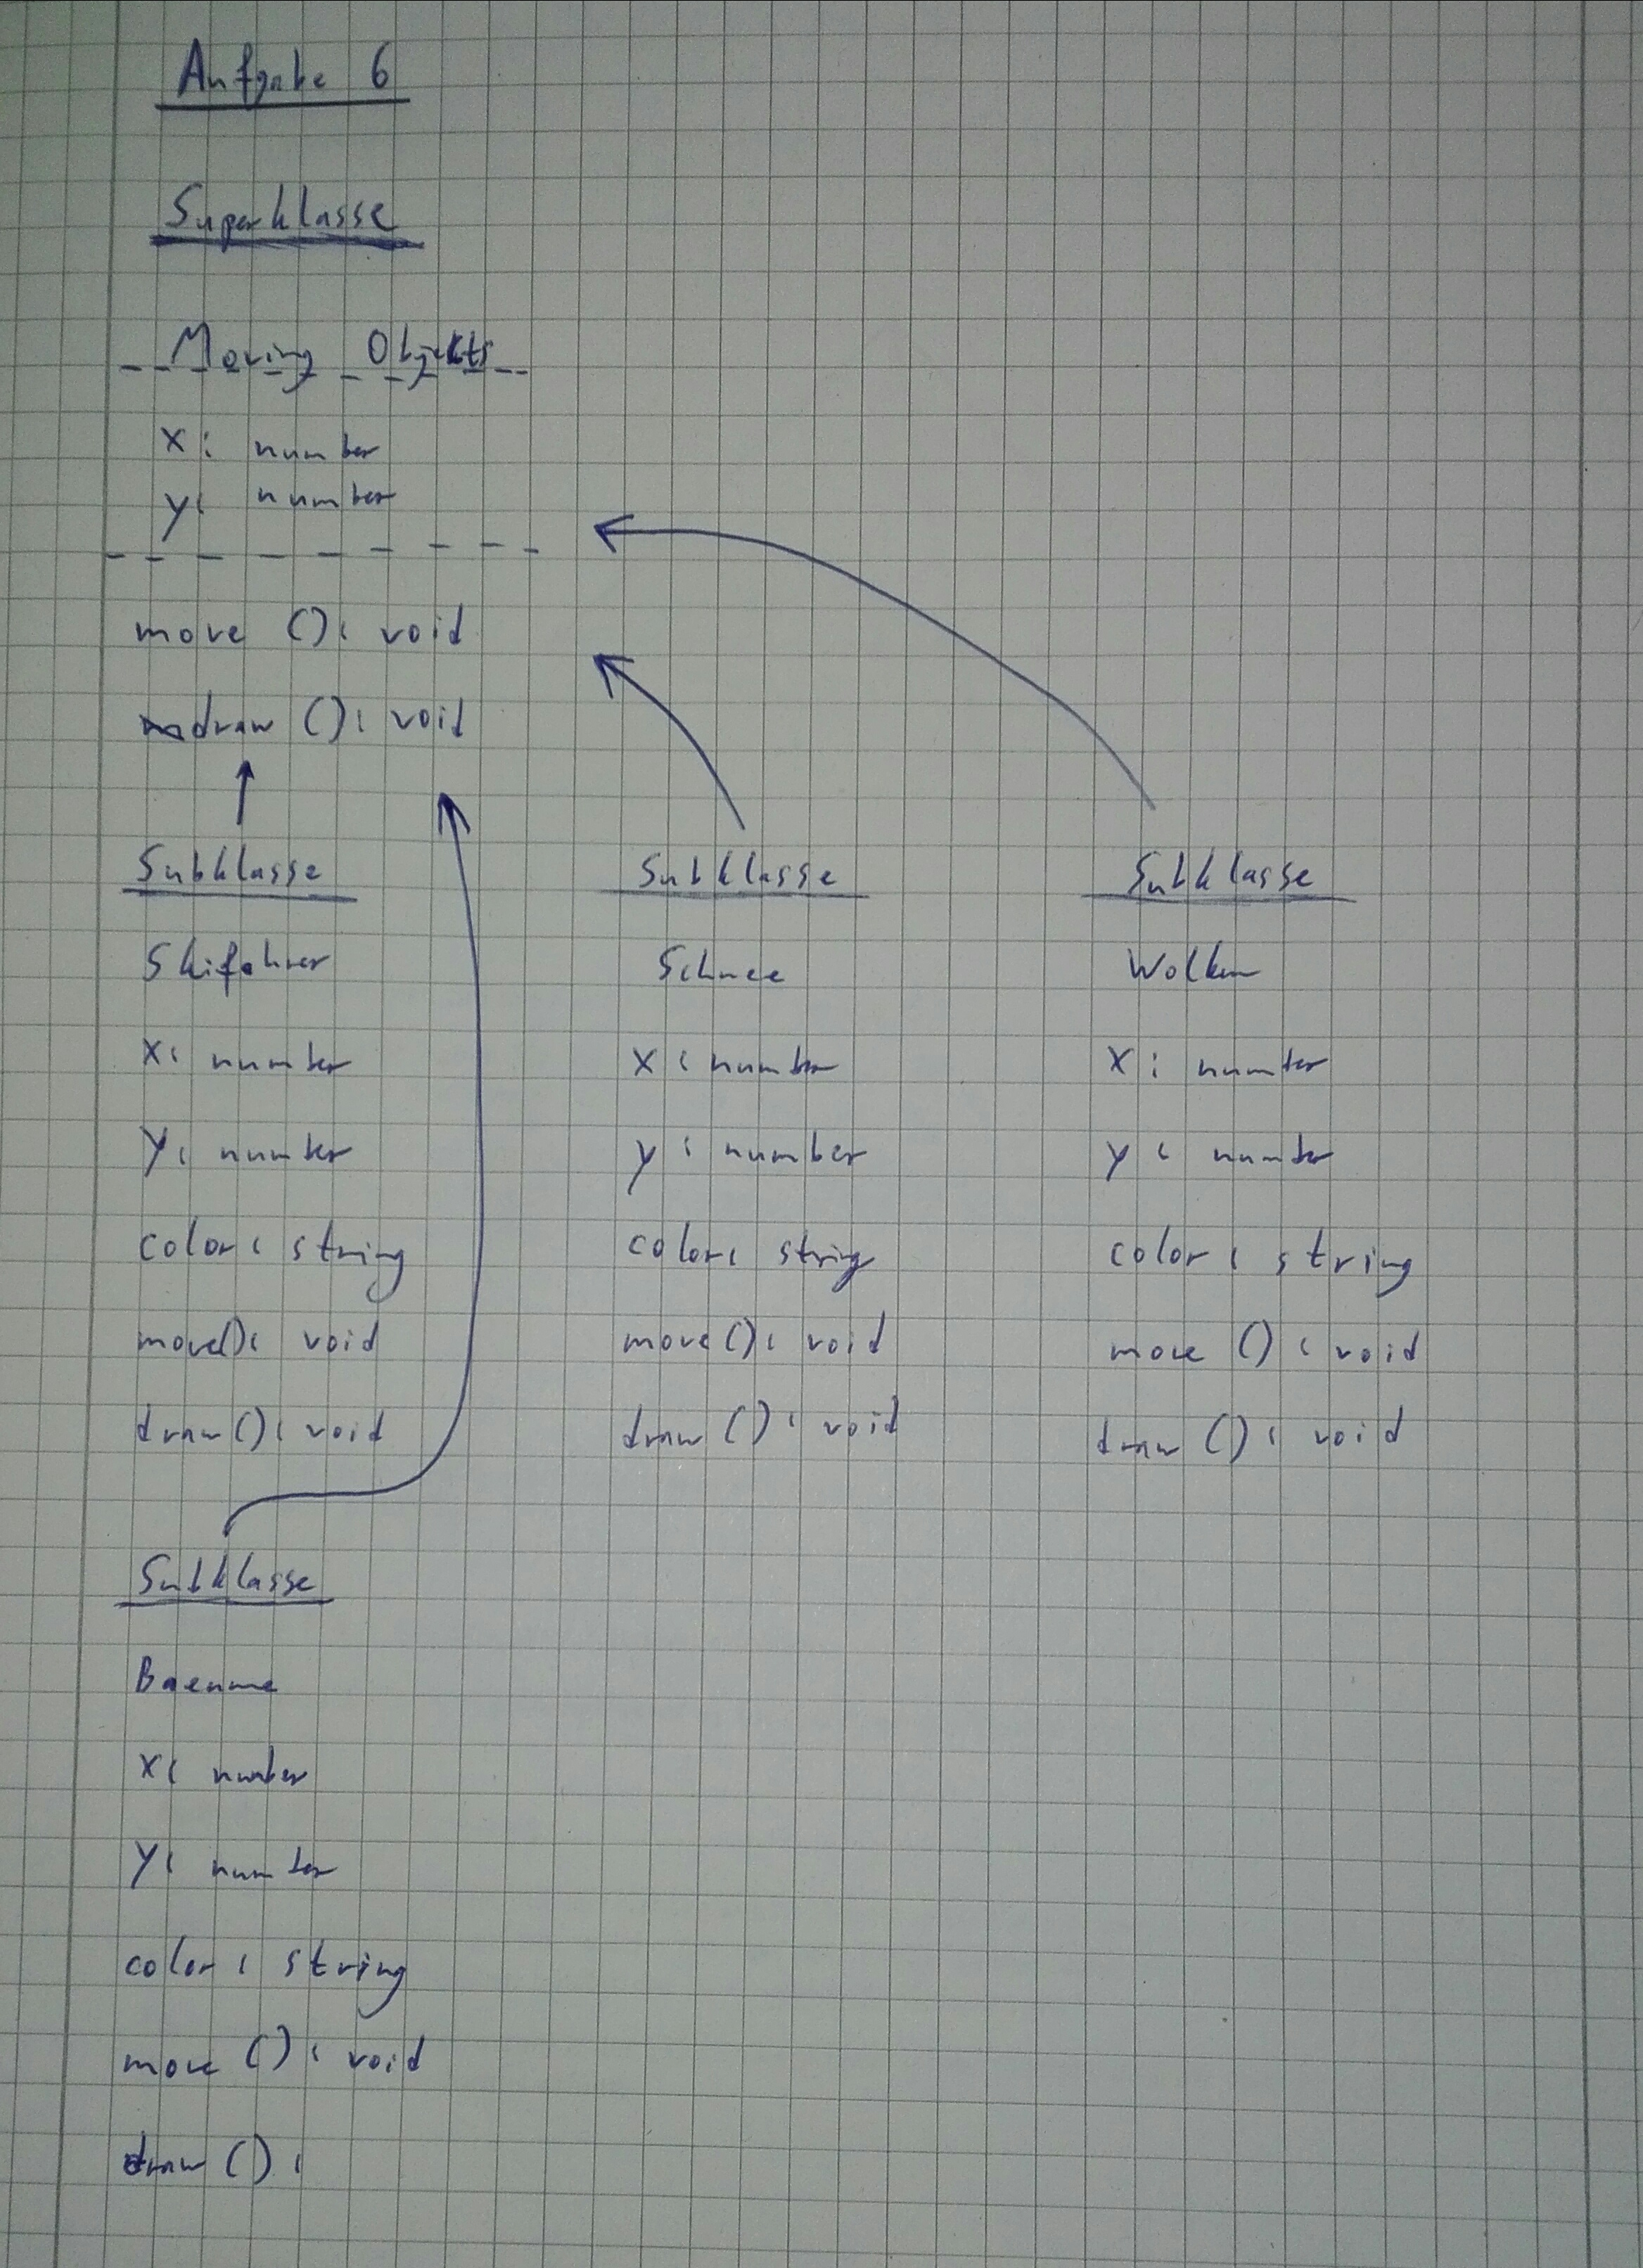 Aufgabe 6
Superklasse
Moving Objekts
x: number
y: number
move (): void
draw (): void
Subklasse
Skifahrer
x: number
y: number
color: string
move(): void
draw(): void
Subklasse
Schnee
x: number
y: number
color: string
move(): void
draw(): void
Subklasse
Wolken
x: number
y: number
color: string
move (): void
draw (): void
Subklasse
Baeume
x: number
y: number
color: string
move (): void
draw ():